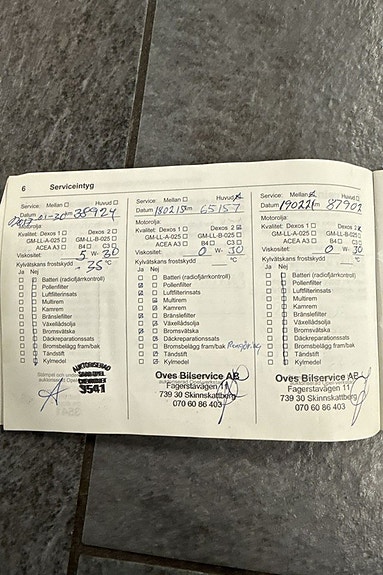 6 Serviceintyg
Service: Mellan Huvud
Datum 2017-01-20 km 38924
Motorolja:
Kvalitet: Dexos 1 Dexos 2
GM-LL-A-025 GM-LL-B-025
ACEA A3 B4 C3
Viskositet: 5 W- 30
Kylvätskans frostskydd
- 35 °C
Ja Nej
Batteri (radiofjärrkontroll)
Pollenfilter
Luftfilterinsats
Multirem
Kamrem
Bränslefilter
Växellådsolja
Bromsvätska
Däckreparationssats
Bromsbelägg fram/bak
Tändstift
Kylmedel
AUKTORISERAD
3541
Service: Mellan Huvud
Datum 180215 km 65157
Motorolja:
Kvalitet: Dexos 1 Dexos 2
GM-LL-A-025 GM-LL-B-025
ACEA A3 B4 C3
Viskositet: 0 W- 30
Kylvätskans frostskydd
°C
Ja Nej
Batteri (radiofjärrkontroll)
Pollenfilter
Luftfilterinsats
Multirem
Kamrem
Bränslefilter
Växellådsolja
Bromsvätska
Däckreparationssats
Bromsbelägg fram/bak
Tändstift
Kylmedel
Oves Bilservice AB
Fagerstavägen 11
739 30 Skinnskatteberg
070 60 86 403
Service: Mellan Huvud
Datum 190221 km 87902
Motorolja:
Kvalitet: Dexos 1 Dexos 2
GM-LL-A-025 GM-LL-B-025
ACEA A3 B4 C3
Viskositet: 0 W- 30
Kylvätskans frostskydd
°C
Ja Nej
Batteri (radiofjärrkontroll)
Pollenfilter
Luftfilterinsats
Multirem
Kamrem
Bränslefilter
Växellådsolja
Bromsvätska
Däckreparationssats
Bromsbelägg fram/bak
Tändstift
Kylmedel
Oves Bilservice AB
Fagerstavägen 11
739 30 Skinnskatteberg
070 60 86 403